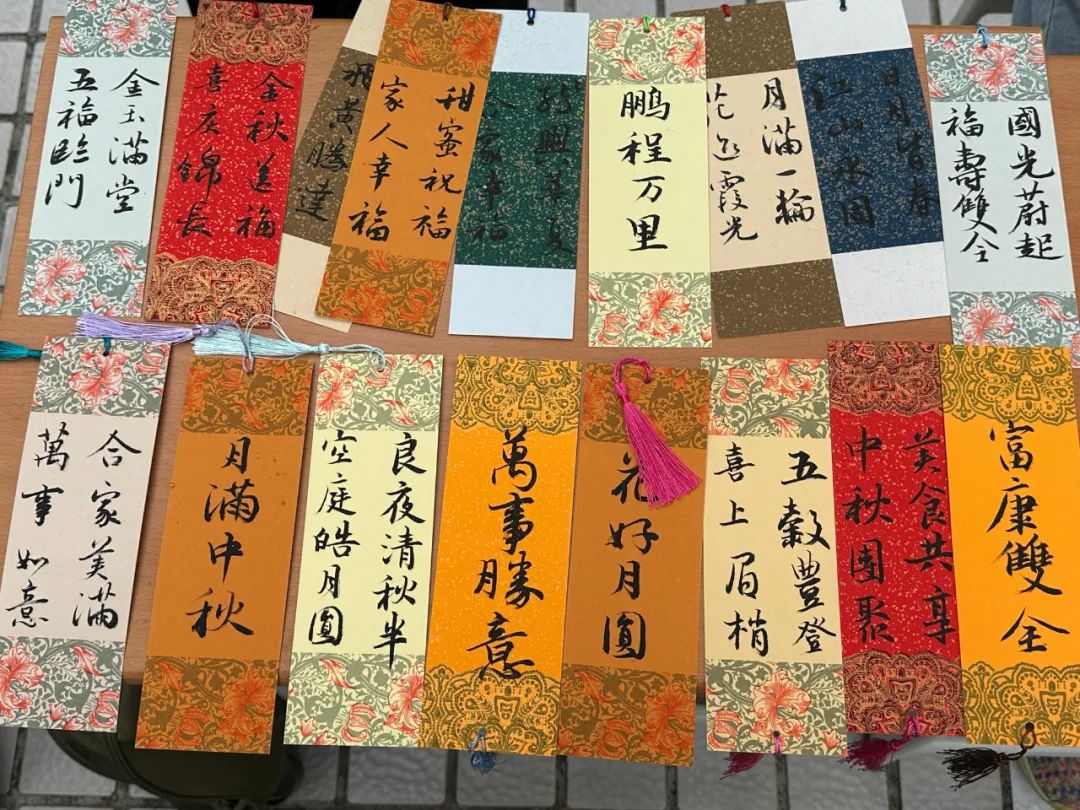 金玉滿堂
五福臨門
金秋送福
喜庆錦長
飛黃騰達
甜蜜祝福
家人幸福
興華夏
合家幸福
鹏程万里
月滿一輪
霞光
日月皆春
江山永固
國光蔚起
福壽雙全
合家美滿
萬事如意
月滿中秋
良夜清秋半
空庭皓月圓
萬事勝意
花好月圓
五穀豐登
喜上眉梢
美食共享
中秋團聚
富康雙全